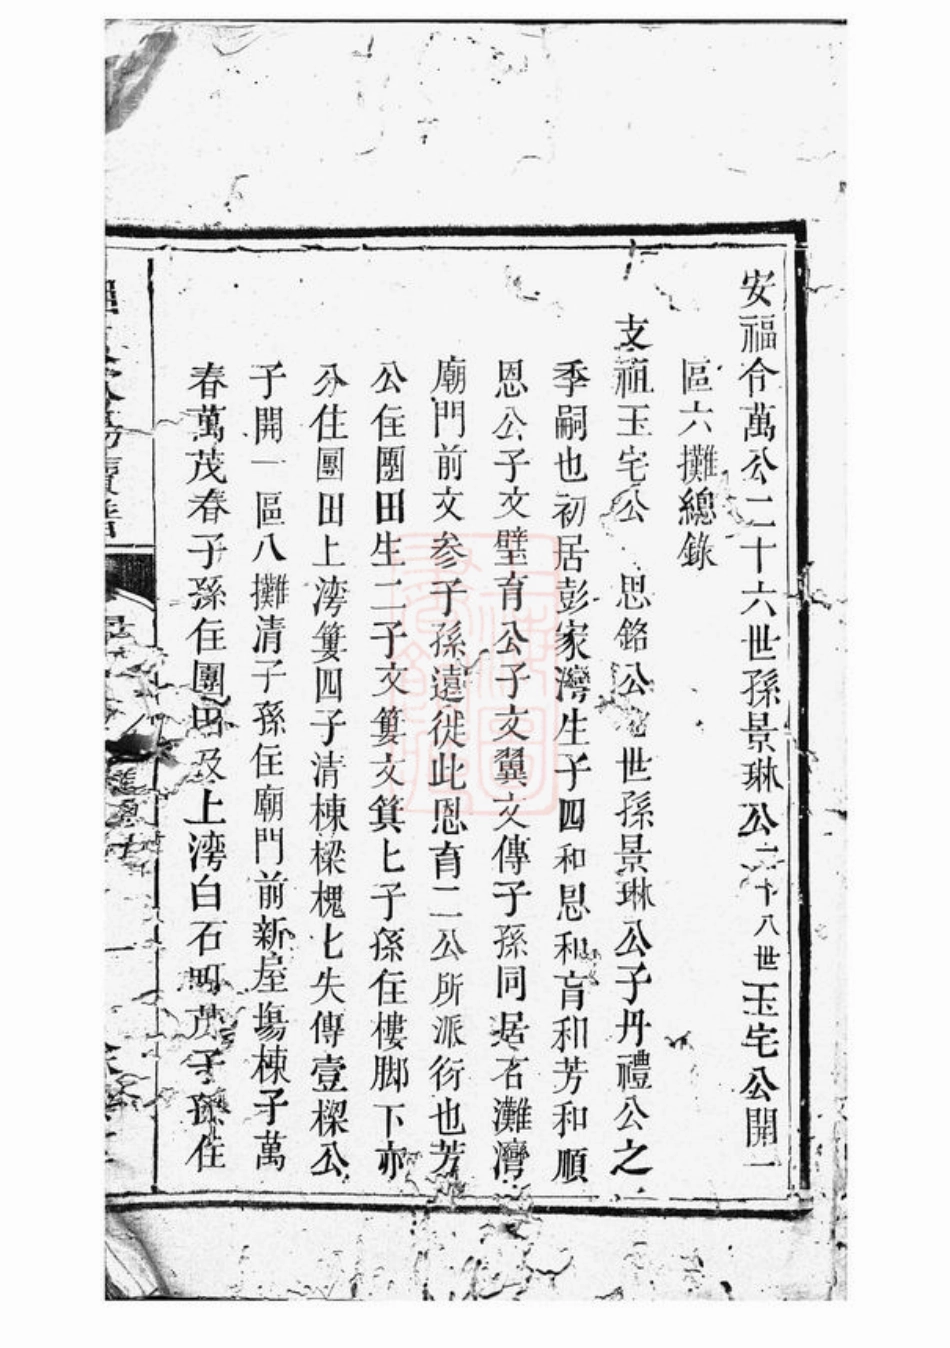 安福合萬公二十六世孫景琳公二十八世玉宅公開一
區六攤總錄
支祖玉宅公 思銘公 世孫景琳公子丹禮公之
季嗣也初居彭家灣生子四和恩和育和芳和順
恩公子文壁育公子文翼文傳子孫同居石灘灣
廟門前文參子孫遠徙此恩育二公所派衍也芳
公住團田生二子文簍文箕七子孫住樓脚下亦
分住團田上湾簍四子清棟樑槐七失傳壹樑公
子開一區八攤清子孫住廟門前新屋塲棟子萬
春萬茂春子孫住團田及上湾白石 茂子孫住